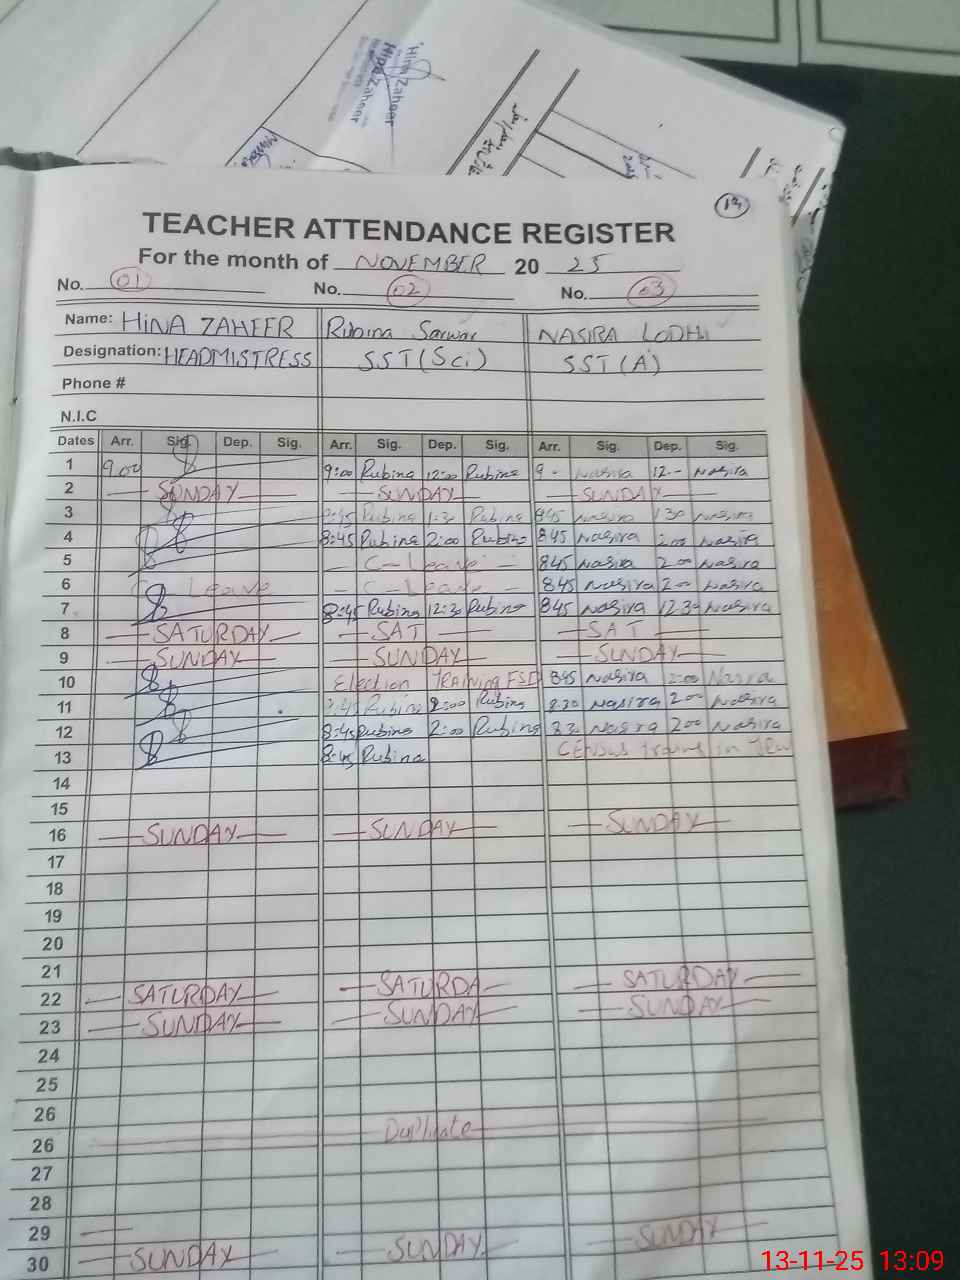 Hina Zaheer
Hina Zaheer
TEACHER ATTENDANCE REGISTER
For the month of NOVEMBER 20 25
No. 01 No. 02 No. 03
Name: HINA ZAHEER Rubina Sarwar NASIRA LODHI
Designation: HEADMISTRESS SST (Sci) SST (A)
Phone #
N.I.C
Dates Arr. Sig. Dep. Sig. Arr. Sig. Dep. Sig. Arr. Sig. Dep. Sig.
1 9:00 Rubina 12:00 Rubina 9 - Nasira 12 - Nasira
2 SUNDAY SUNDAY SUNDAY
3 Rubina 1:30 Rubina 845 Nasira 130 Nasira
4 8:45 Rubina 2:00 Rubina 845 Nasira 200 Nasira
5 C-Leave 845 Nasira 200 Nasira
6 Leave C-Leave 845 Nasira 200 Nasira
7 8:45 Rubina 12:30 Rubina 845 Nasira 12 30 Nasira
8 SATURDAY SAT SAT
9 SUNDAY SUNDAY SUNDAY
10 Election TRAINING 845 Nasira 2:00 Nasira
11 Rubina 2:00 Rubina 830 Nasira 200 Nasira
12 8:45 Rubina 2:00 Rubina Nasira 200 Nasira
13 8:45 Rubina CENSUS in
14
15
16 SUNDAY SUNDAY SUNDAY
17
18
19
20
21
22 SATURDAY SATURDA SATURDAY
23 SUNDAY SUNDAY SUNDAY
24
25
26
26 Duplicate
27
28
29
30 SUNDAY SUNDAY SUNDAY
13-11-25 13:09